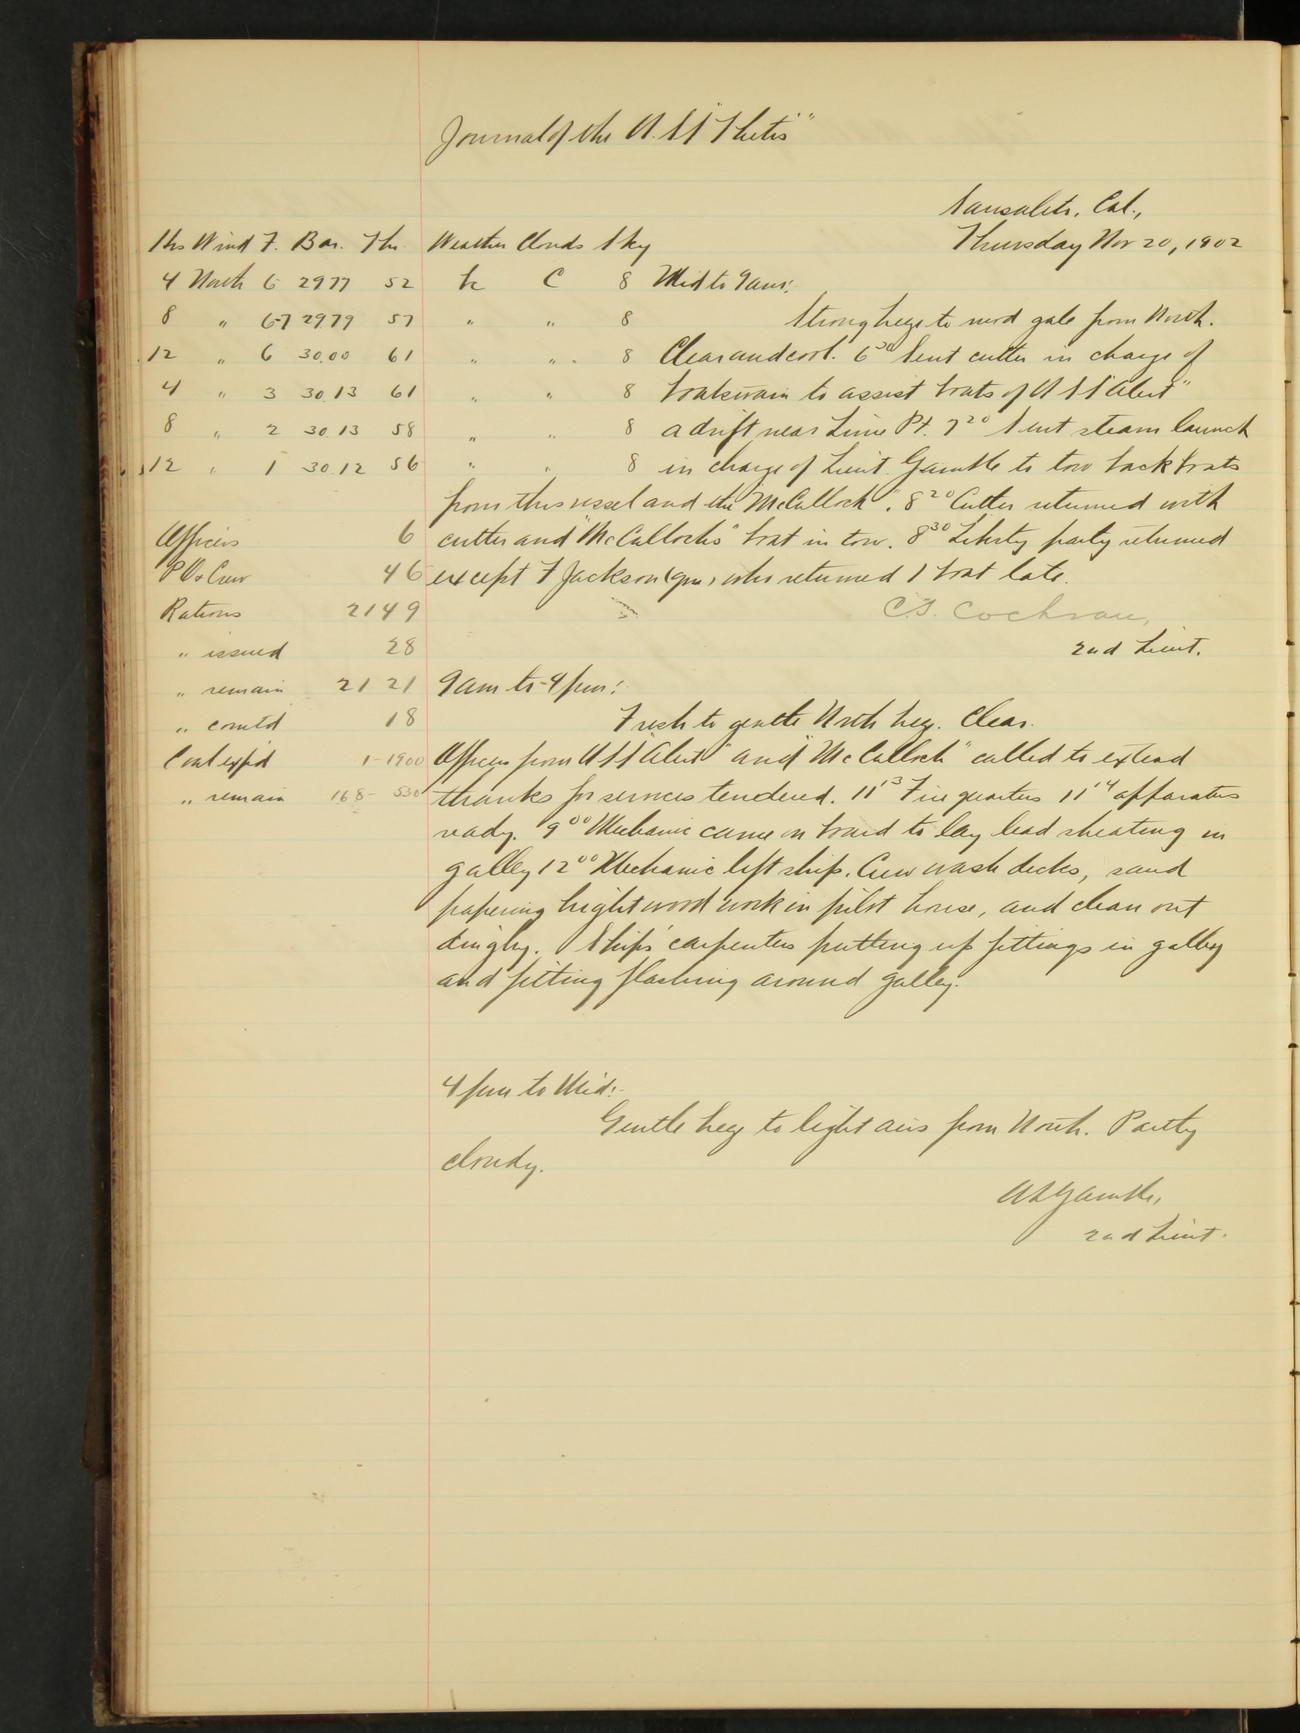 Journal of the U.S.S "Thetis"
Sausalito, Cal.,
Hrs Wind F. Bar. Thr. Weather Clouds Sky Thursday Nov 20, 1902
4 North 6 2977 52 bc C 8 Mid to 9 am:
8 " 6-7 2979 57 " " 8 Strong breeze to mod gale from North.
12 " 6 30.00 61 " " 8 Clear and cool. 6 30 Sent cutter in charge of
4 " 3 30.13 61 " " 8 boatswain to assist boats of U S S "Alert"
8 " 2 30.13 58 " " 8 adrift near Lime Pt. 7 20 Sent steam launch
12 " 1 30.12 56 " " 8 in charge of Lieut. Gamble to tow back boats
from this vessel and the "McCulloch". 8 20 Cutter returned with
Officers 6 cutter and "McCullochs" boat in tow. 8 30 Liberty party returned
P Os Crew 46 except F Jackson who returned 1 boat late.
Rations 2149 C.S. Cochran,
" issued 28 2nd Lieut.
" remain 2121 9 am to 4 pm:
" com'td 18 Fresh to gentle North brez. Clear.
Coal exp'd 1-1900 Officers from U S S "Alert" and "McCulloch" called to extend
" remain 168- 530 thanks for services tendered. 11 13 Fire quarters 11 14 apparatus
ready. 9 00 Mechanic came on board to lay lead sheating in
galley 12 00 Mechanic left ship. Crew wash decks, sand
papering bright wood work in pilot house, and clean out
dinghy. Ships' carpenters putting up fittings in galley
and fitting flashing around galley.
4 pm to Mid:-
Gentle brez to light airs from North. Partly
cloudy.
Gamble,
2nd Lieut.